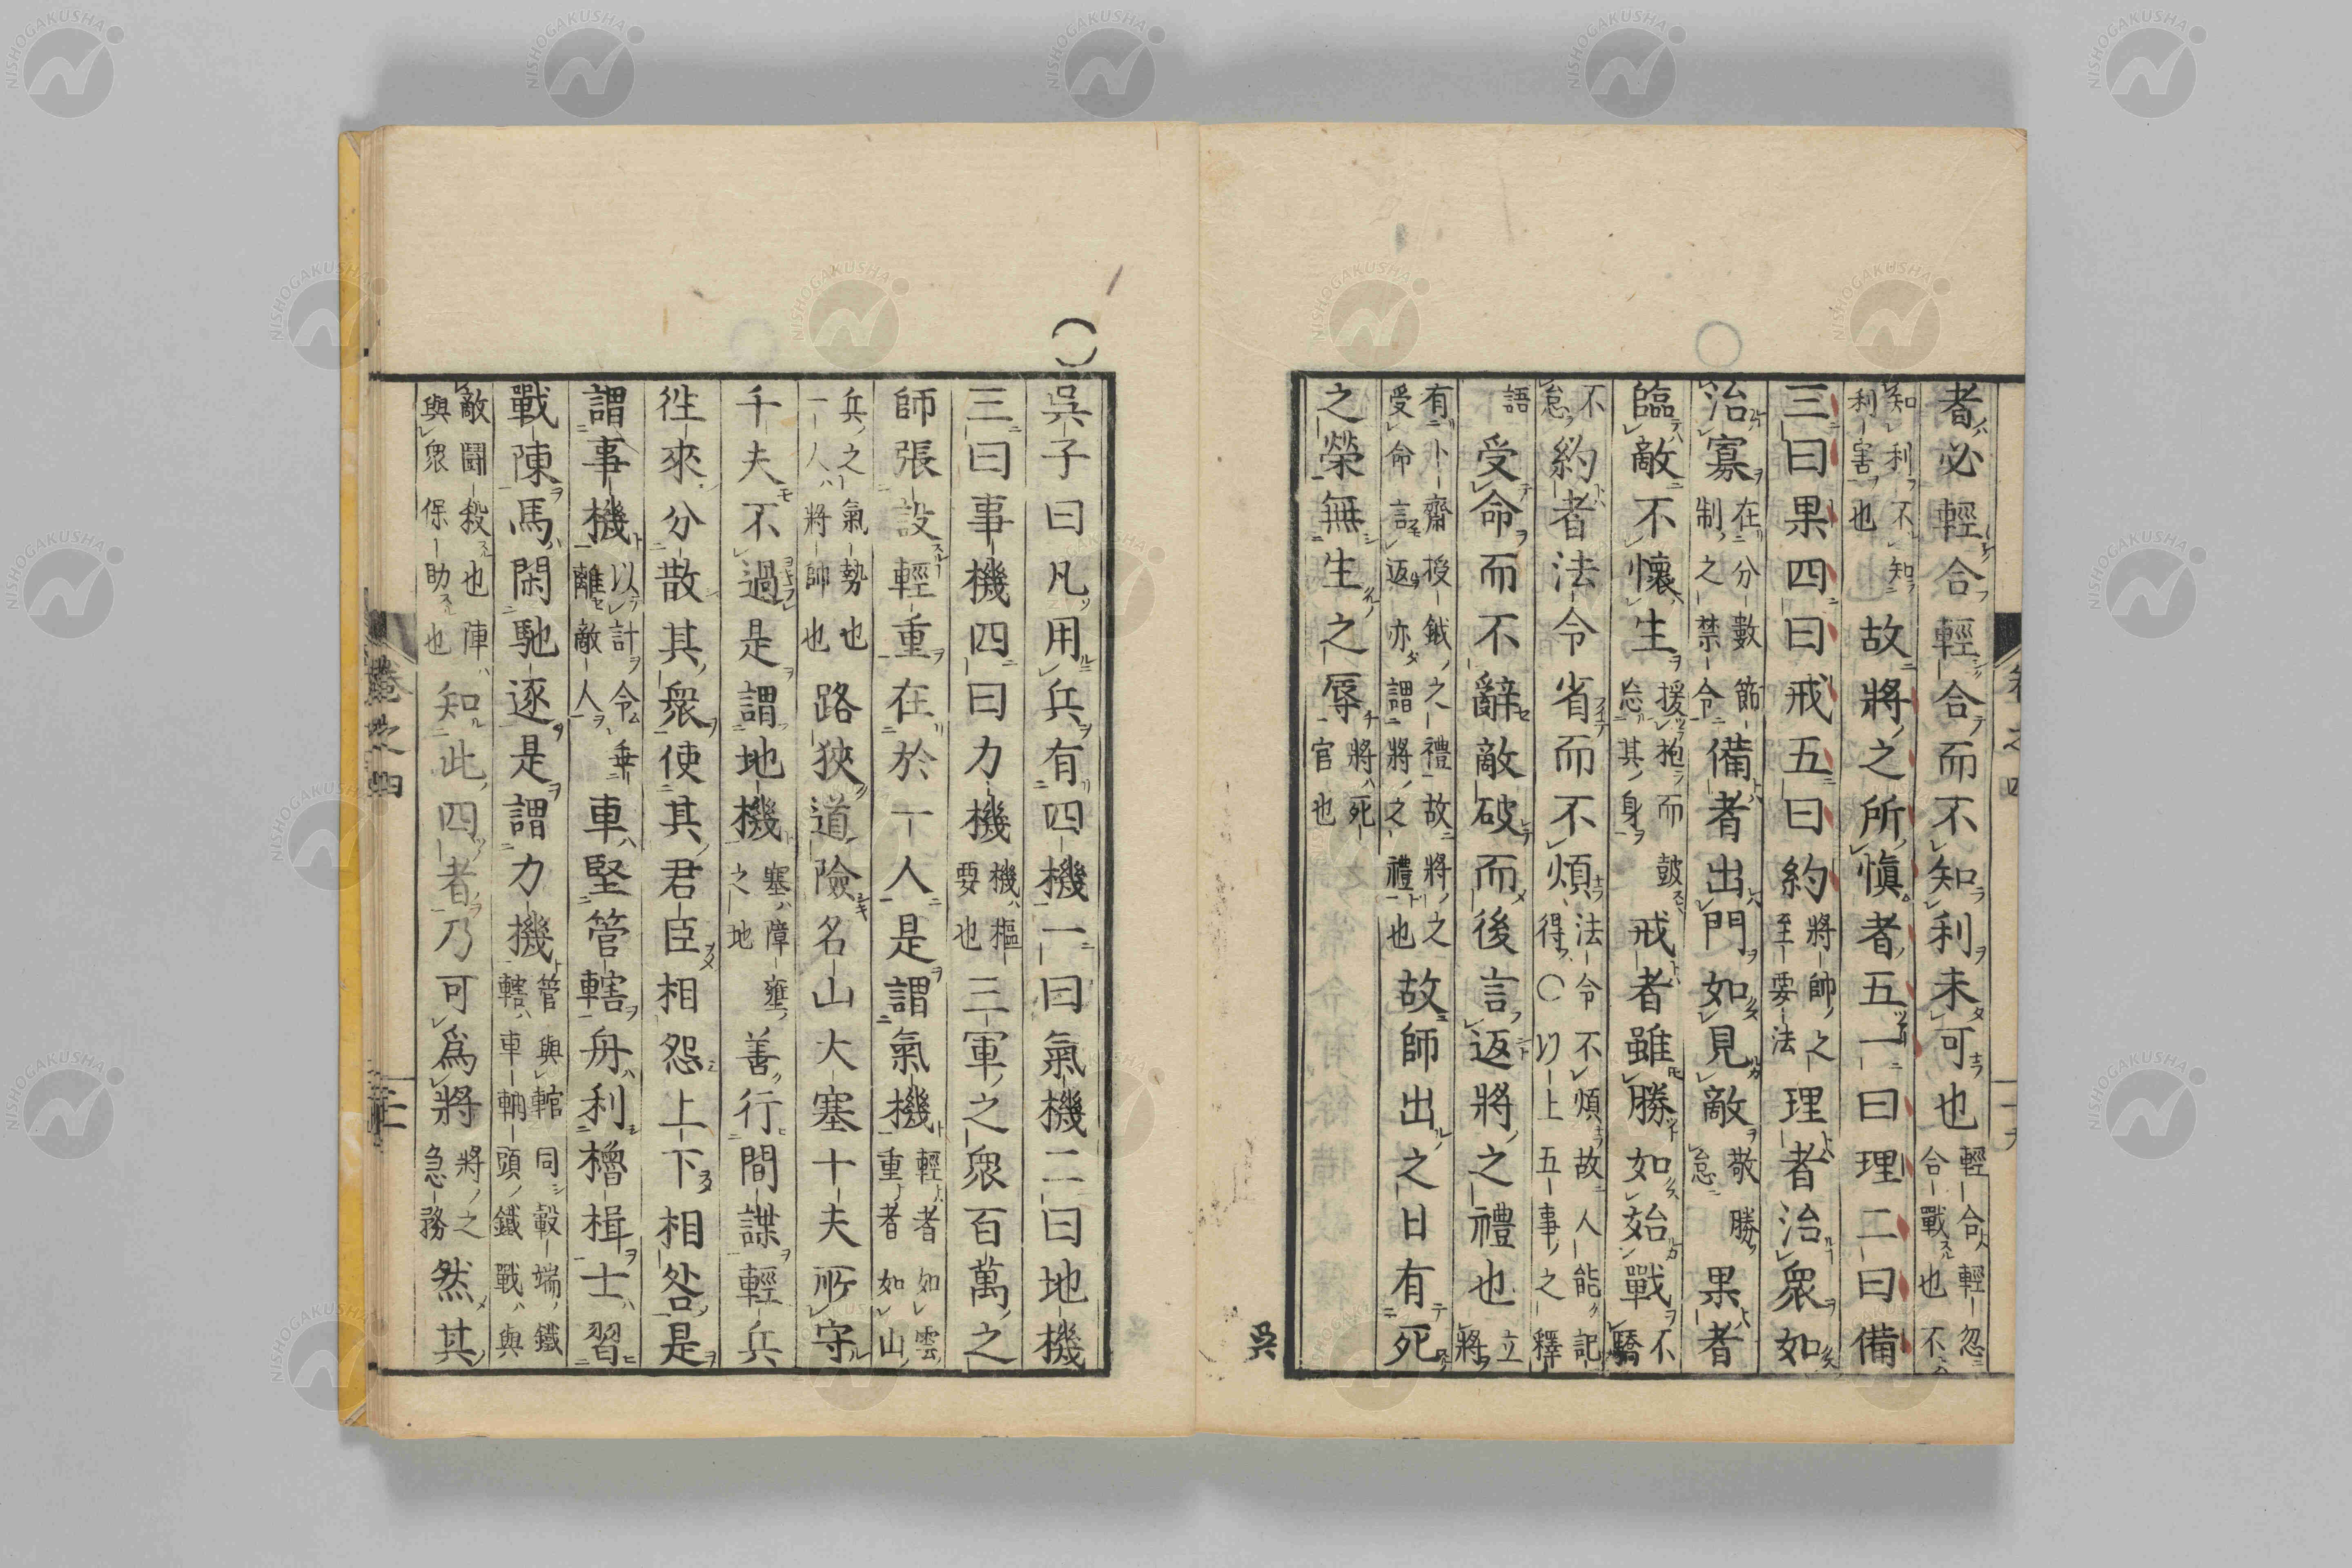 者必輕合輕合而不知利未可也輕合輕忽合戰也不
知利不知利害也故將之所愼者五一曰理二曰備
三曰果四曰戒五曰約將帥之至要法理者治衆如
治寡在分數制之禁令備者出門如見敵敬勝怠果者
臨敵不懷生援枹而鼓忘其身戒者雖勝如始戰不驕
不怠約者法令省而不煩法令不煩故人能記得○以上五事之釋
語受命而不辭敵破而後言返將之禮也立將
有卜齋授鉞之禮故將之受命言返亦謂將之禮也故師出之日有死
之榮無生之辱將死官也
吳
吳子曰凡用兵有四機一曰氣機二曰地機
三曰事機四曰力機機樞要也三軍之衆百萬之
師張設輕重在於一人是謂氣機輕者如雲重者如山
兵之氣勢也一人將帥也路狹道險名山大塞十夫所守
千夫不過是謂地機塞障壅之地善行間諜輕兵
徃來分散其衆使其君臣相怨上下相咎是
謂事機以計令乖離敵人車堅管轄舟利櫓楫士習
戰陳馬閑馳逐是謂力機管與輨同轂端鐵轄車軸頭鐵戰與
敵鬪殺也陣與衆保助也知此四者乃可爲將將之急務然其
卷之四
NISHOGAKUSHA